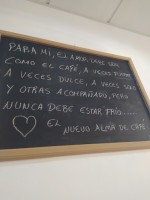 PARA MI, EL AMOR DEBE SER
COMO EL CAFÉ, A VECES FUERTE
A VECES DULCE, A VECES SOLO
Y OTRAS ACOMPAÑADO, PERO
NUNCA DEBE ESTAR FRÍO.....
EL NUEVO AROMA DE CAFÉ